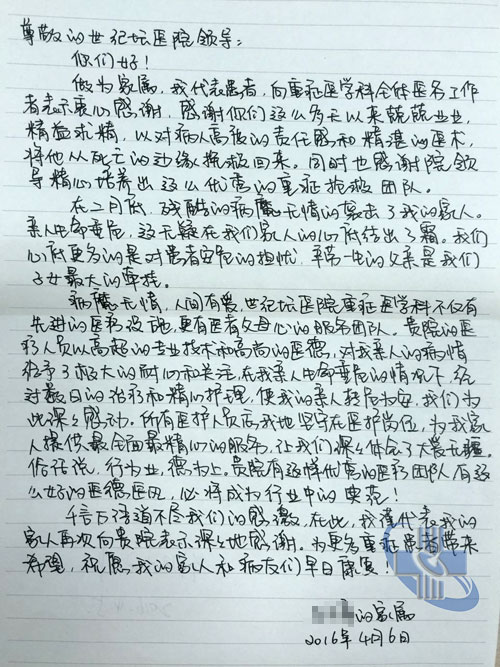 尊敬的世纪坛医院领导:
你们好!
做为家属,我代表患者,向重症医学科全体医务工作
者表示衷心感谢,感谢你们这么多天以来兢兢业业,
精益求精,以对病人高度的责任感和精湛的医术,
将他从死亡的边缘抢救回来。同时也感谢院领
导精心培养出这么优秀的重症抢救团队。
在二月底,残酷的病魔无情的袭击了我的家人。
亲人生命垂危,这无疑在我们家人的心底结出了霜。我们
心底更多的是对患者安危的担忧,平常一生的父亲是我们
子女最大的牵挂。
病魔无情,人间有爱,世纪坛医院重症医学科不仅有
先进的医疗设施,更有医者父母心的服务团队。贵院的医
疗人员以高超的专业技术和高尚的医德,对我亲人的病情
给予了极大的耐心和关注,在我亲人生命垂危的情况下,经
过数日的治疗和精心护理,使我的亲人转危为安,我们为
此深深感动。所有医护人员忘我地坚守在医护岗位,为我家
人提供最全面最精心的服务,让我们深深体会了大爱无疆。
俗话说,行为业,德为上,贵院有这样优秀的医疗团队,有这
么好的医德医风,必将成为行业中的典范!
千言万语道不尽我们的感激,在此,我谨代表我的
家人再次向贵院表示深深地感谢。为更多重症患者带来
希望,祝愿我的家人和病友们早日康复!
的家属
2016年4月6日